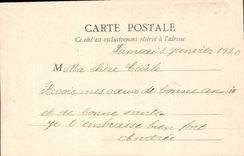 CARTE POSTALE
Ce côté est exclusivement réservé à l'adresse
Samedi 8 janvier 1920
M Ma chère Cécile
Reçois mes vœux de bonne année
et de bonne santé
je t'embrasse bien fort
Andrée